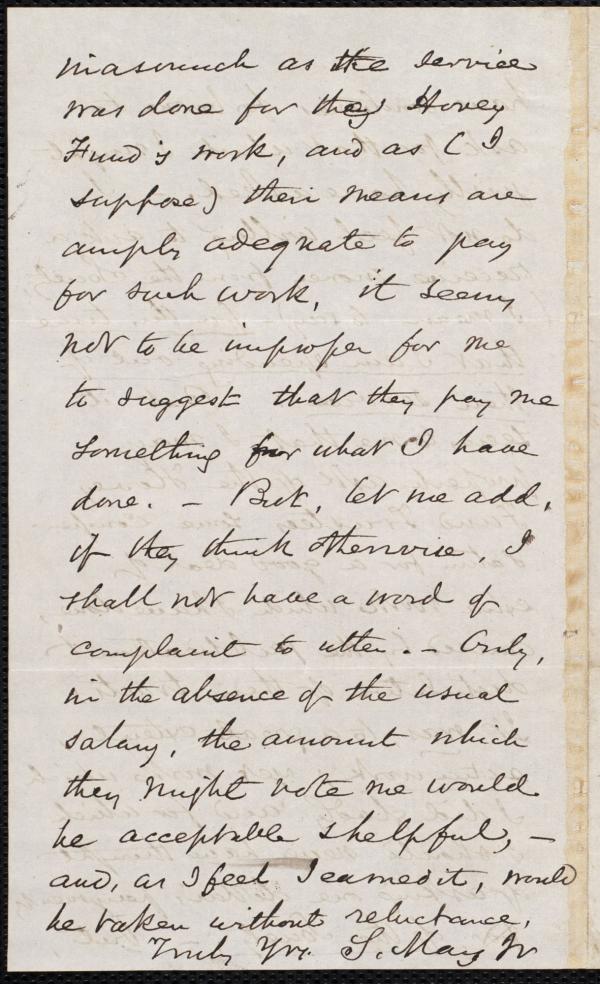 inasmuch as the service
was done for the Hovey
Fund's work, and as (I
suppose) their means are
amply adequate to pay
for such work, it seems
not to be improper for me
to suggest that they pay me
something for what I have
done. – But, let me add,
if they think otherwise, I
shall not have a word of
complaint to utter. – Only,
in the absence of the usual
salary, the amount which
they might vote me would
be acceptable & helpful, –
and, as I feel I earned it, would
be taken without reluctance.
Truly Yrs. S. May Jr